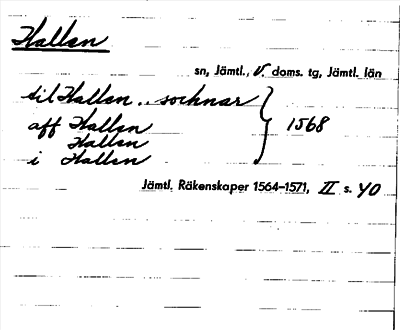 Hallen
sn, Jämtl., V. doms. tg, Jämtl. län
till Hallen .. sochnar
aff Hallen
Hallen
i Hallen
1568
Jämtl. Räkenskaper 1564–1571, II s. 40